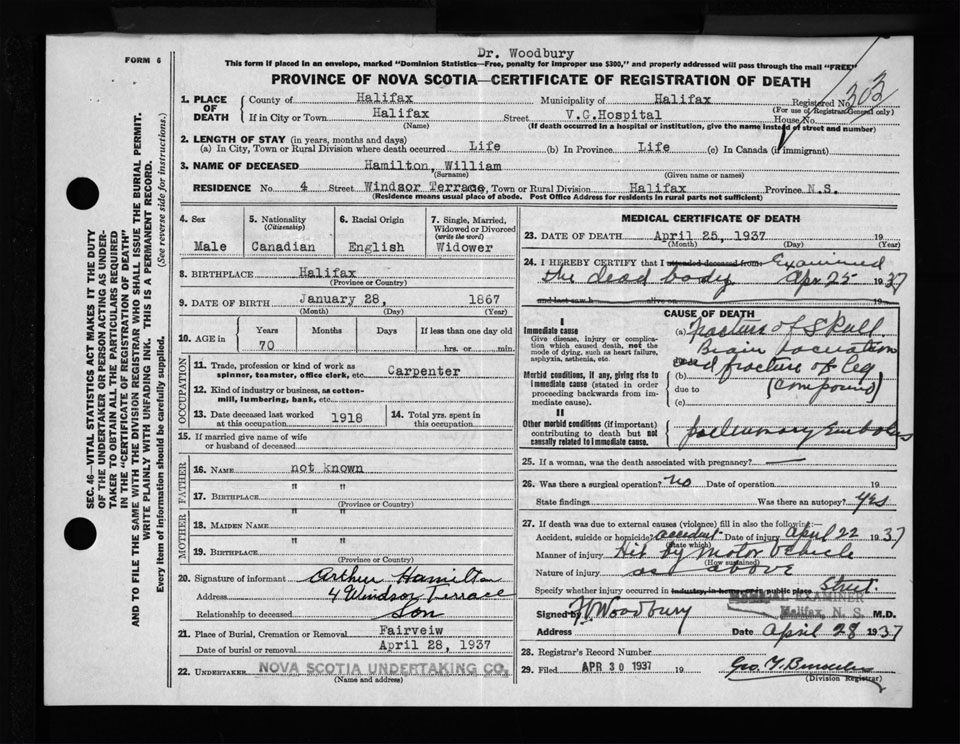 Dr. Woodbury
FORM 6
This form if placed in an envelope, marked "Dominion Statistics—Free, penalty for improper use $300," and properly addressed will pass through the mail "FREE"
PROVINCE OF NOVA SCOTIA—CERTIFICATE OF REGISTRATION OF DEATH
1. PLACE OF DEATH
County of Halifax Municipality of Halifax Registered No. 303
(For use of Registrar General only)
If in City or Town Halifax Street V.G.Hospital House No.
(Name) (If death occurred in a hospital or institution, give the name instead of street and number)
2. LENGTH OF STAY (in years, months and days)
(a) In City, Town or Rural Division where death occurred Life (b) In Province Life (c) In Canada (if immigrant)
3. NAME OF DECEASED Hamilton, William
(Surname) (Given name or names)
RESIDENCE No. 4 Street Windsor Terrace, Town or Rural Division Halifax Province N.S.
(Residence means usual place of abode. Post Office Address for residents in rural parts not sufficient)
SEC. 46—VITAL STATISTICS ACT MAKES IT THE DUTY
OF THE UNDERTAKER OR PERSON ACTING AS UNDER-
TAKER TO OBTAIN ALL THE PARTICULARS REQUIRED
IN THE "CERTIFICATE OF REGISTRATION OF DEATH"
AND TO FILE THE SAME WITH THE DIVISION REGISTRAR WHO SHALL ISSUE THE BURIAL PERMIT.
WRITE PLAINLY WITH UNFADING INK. THIS IS A PERMANENT RECORD.
Every item of information should be carefully supplied. (See reverse side for instructions.)
4. Sex
Male
5. Nationality
(Citizenship)
Canadian
6. Racial Origin
English
7. Single, Married,
Widowed or Divorced
(write the word)
Widower
8. BIRTHPLACE Halifax
(Province or Country)
9. DATE OF BIRTH January 28, 1867
(Month) (Day) (Year)
10. AGE in
Years Months Days If less than one day old
70 hrs. or min.
OCCUPATION
11. Trade, profession or kind of work as
spinner, teamster, office clerk, etc. Carpenter
12. Kind of industry or business, as cotton-
mill, lumbering, bank, etc.
13. Date deceased last worked
at this occupation 1918
14. Total yrs. spent in
this occupation
15. If married give name of wife
or husband of deceased
FATHER
16. NAME not known
17. BIRTHPLACE " "
(Province or Country)
MOTHER
18. MAIDEN NAME " "
19. BIRTHPLACE " "
(Province or Country)
20. Signature of informant Arthur Hamilton
Address 4 Windsor Terrace
Relationship to deceased Son
21. Place of Burial, Cremation or Removal Fairveiw
Date of burial or removal April 28, 1937
22. UNDERTAKER NOVA SCOTIA UNDERTAKING CO.
(Name and address)
MEDICAL CERTIFICATE OF DEATH
23. DATE OF DEATH April 25, 1937 19
(Month) (Day) (Year)
24. I HEREBY CERTIFY that I attended deceased from Examined
the dead body Apr 25 1937
and last saw h alive on 19
CAUSE OF DEATH
I
Immediate cause
Give disease, injury or complica-
tion which caused death, not the
mode of dying, such as heart failure,
asphyxia, asthenia, etc.
(a) Fracture of Skull
Brain
Morbid conditions, if any, giving rise to
immediate cause (stated in order
proceeding backwards from im-
mediate cause).
(b) fracture of Leg
due to (Compound)
(c)
II
Other morbid conditions (if important)
contributing to death but not
causally related to immediate cause.
25. If a woman, was the death associated with pregnancy? —
26. Was there a surgical operation? No Date of operation 19
State findings Was there an autopsy? yes
27. If death was due to external causes (violence) fill in also the following:—
Accident, suicide or homicide? accident Date of injury April 22 1937
(State which)
Manner of injury Hit by Motor Vehicle
(How sustained)
Nature of injury as above
Specify whether injury occurred in industry, in home, or in public place Street
MEDICAL EXAMINER
Signed by Woodbury Halifax, N. S. M.D.
Address Date April 28 1937
28. Registrar's Record Number
29. Filed APR 30 1937 19
(Division Registrar)